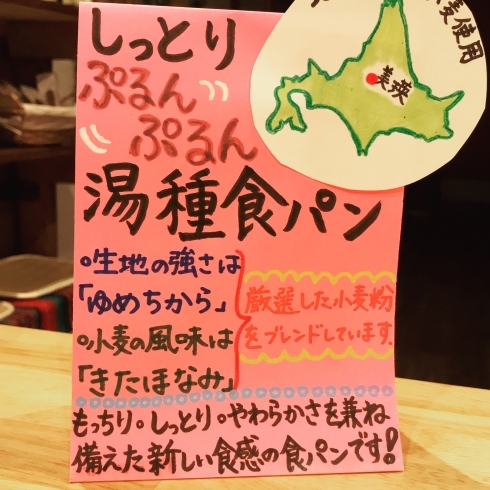 麦使用
美瑛
しっとり
ぷるん
ぷるん
湯種食パン
・生地の強さは
「ゆめちから」
・小麦の風味は
「きたほなみ」
厳選した小麦粉
をブレンドしています.
もっちり・しっとり・やわらかさを兼ね
備えた新しい食感の食パンです!